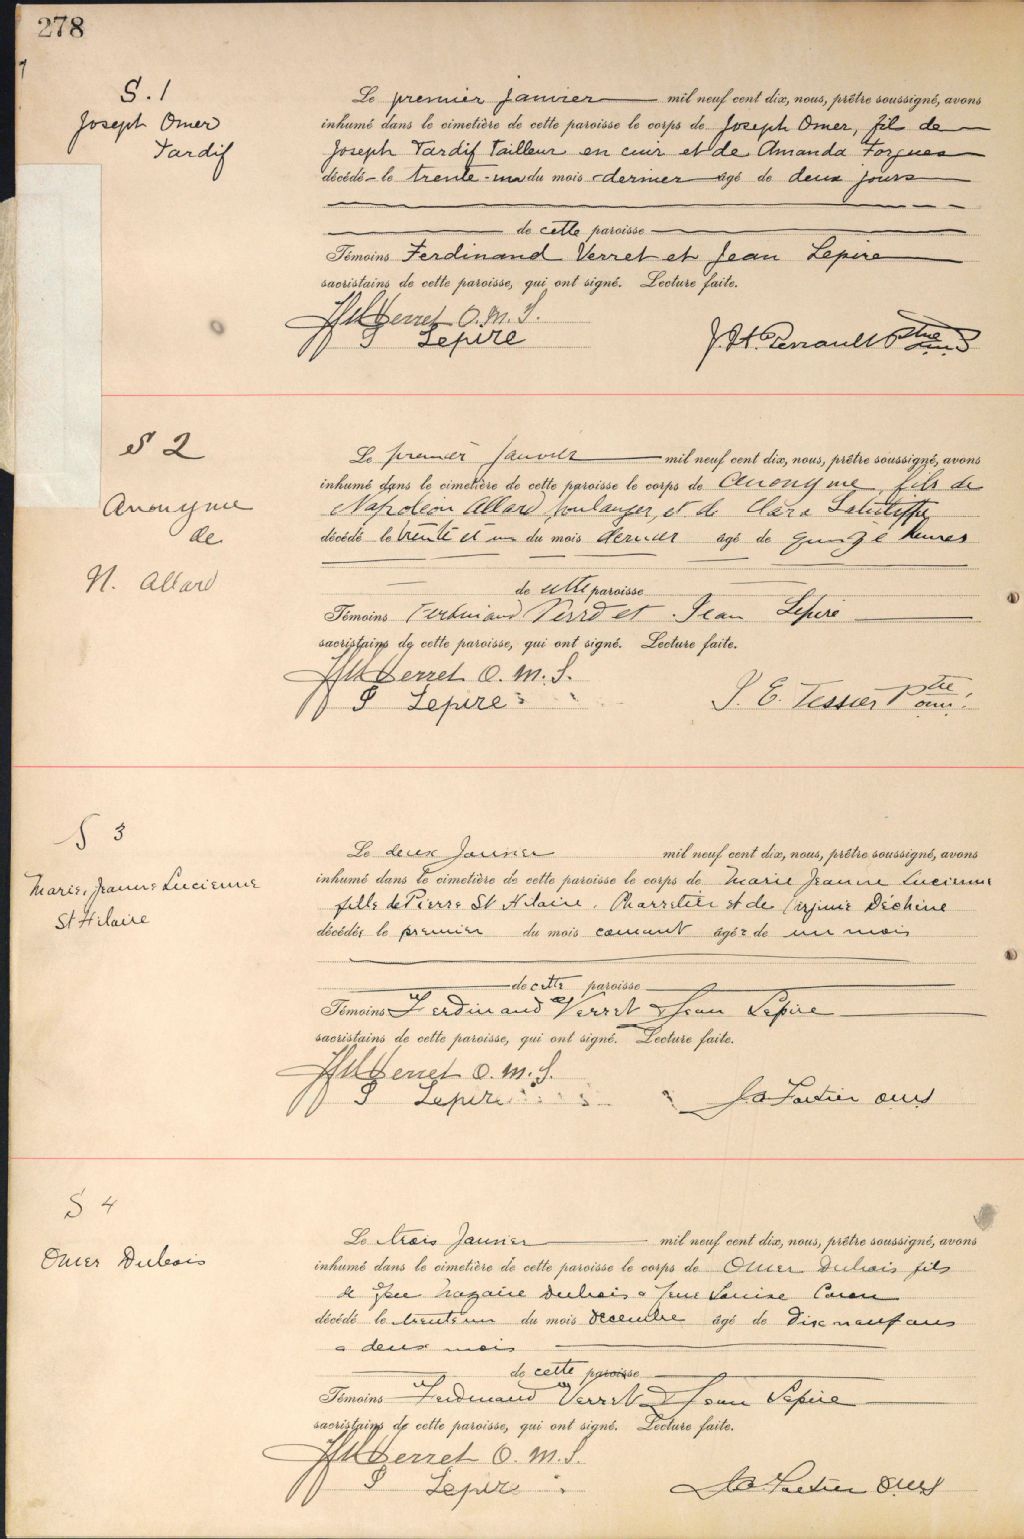 278
S. 1
Joseph Omer
Tardif
Le premier janvier mil neuf cent dix, nous, prêtre soussigné, avons
inhumé dans le cimetière de cette paroisse le corps de Joseph Omer, fils de
Joseph Tardif Tailleur en cuir et de Amanda Forgues
décédé le trente-un du mois dernier âgé de deux jours
de cette paroisse
Témoins Ferdinand Verret et Jean Lepire
sacristains de cette paroisse, qui ont signé. Lecture faite.
Verret O. M. S.
Lepire
J. H. Perrault Ptre
S 2
Anonyme
de
N. Allard
Le premier janvier mil neuf cent dix, nous, prêtre soussigné, avons
inhumé dans le cimetière de cette paroisse le corps de Anonyme fils de
Napoléon Allard boulanger, et de Clara
décédé le trente et un du mois dernier âgé de quinze heures
de cette paroisse
Témoins Ferdinand Verret et Jean Lepire
sacristains de cette paroisse, qui ont signé. Lecture faite.
Verret O. M. S.
Lepire
P. E. Tessier Ptre
S 3
Marie, Jeanne Lucienne
St Hilaire
Le deux Janvier mil neuf cent dix, nous, prêtre soussigné, avons
inhumé dans le cimetière de cette paroisse le corps de Marie Jeanne Lucienne
fille de Pierre St Hilaire, Charretier et de Virginie Déchène
décédée le premier du mois courant âgée de un mois
de cette paroisse
Témoins Ferdinand Verret & Jean Lepire
sacristains de cette paroisse, qui ont signé. Lecture faite.
Verret O. M. S.
Lepire
Fortier omi
S 4
Omer Dubois
Le trois Janvier mil neuf cent dix, nous, prêtre soussigné, avons
inhumé dans le cimetière de cette paroisse le corps de Omer Dubois fils
de feu Nazaire Dubois & feue Louise Caron
décédé le trente un du mois Décembre âgé de Dix neuf ans
& deux mois
de cette paroisse
Témoins Ferdinand Verret & Jean Lepire
sacristains de cette paroisse, qui ont signé. Lecture faite.
Verret O. M. S.
Lepire
Fortier omi